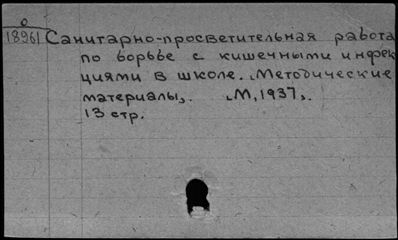 0
18961 Санитарно-просветительная работа
по борьбе с кишечными инфек
циями в школе. "Методические
материалы".   "М, 1937".
13 стр.